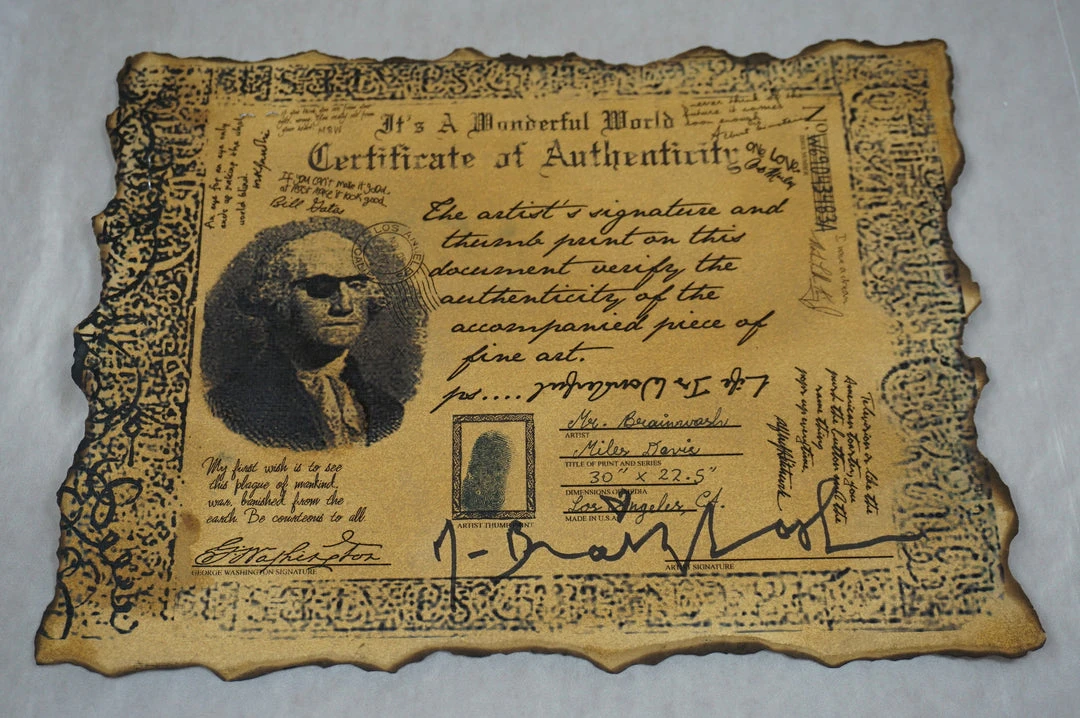 It's A Wonderful World
Certificate of Authenticity
never think of the
future it comes
soon enough
Albert Einstein
ONE LOVE
An eye for an eye only
ends up making the whole
world blind.
If you can't make it good,
at least make it look good.
Bill Gates
LOS ANGELES
The artist's signature and
thumb print on this
document verify the
authenticity of the
accompanied piece of
fine art.
ps..... Life Is Wonderful
Mr. Brainwash
ARTIST
Miles Davis
TITLE OF PRINT AND SERIES
30" X 22.5"
DIMENSIONS OF MEDIA
Los Angeles, CA.
MADE IN U.S.A.
ARTIST THUMBPRINT
My first wish is to see
this plague of mankind,
war, banished from the
earth. Be courteous to all.
G Washington
GEORGE WASHINGTON SIGNATURE
ARTIST SIGNATURE
Television is like the
American toaster, you
push the button and the
same thing
pops up everytime.
Alfred Hitchcock
I was a dream